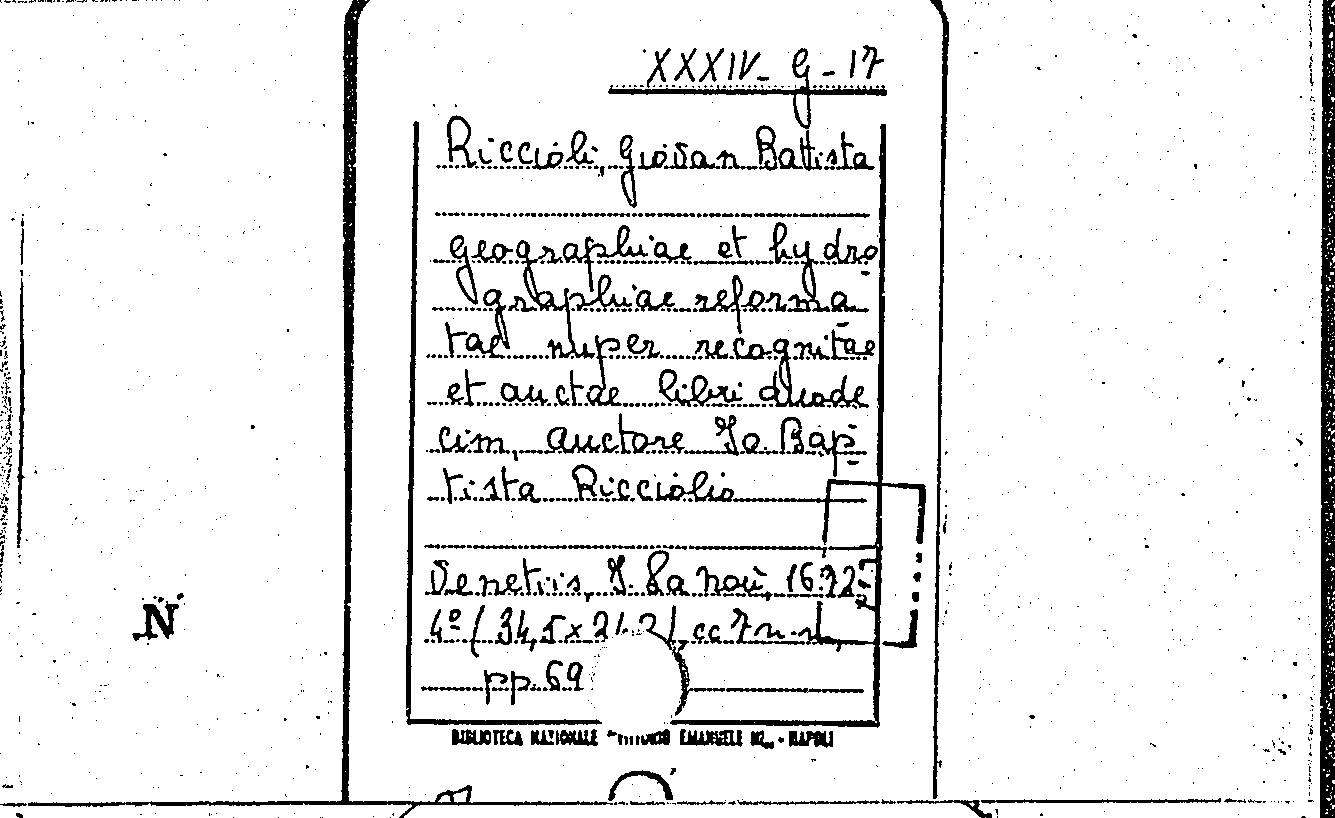 XXXIV- G - 17
Riccioli, Giovan Battista
Geographiae et hydro
graphiae reforma
tae nuper recognitae
et auctae libri duode
cim, auctore Jo. Bap
tista Ricciolio
Venetiis, J. La Noù, 1672
4º (34,5x24,2), cc 7 n.n.,
pp. 69
BIBLIOTECA NAZIONALE "VITTORIO EMANUELE III" - NAPOLI
N